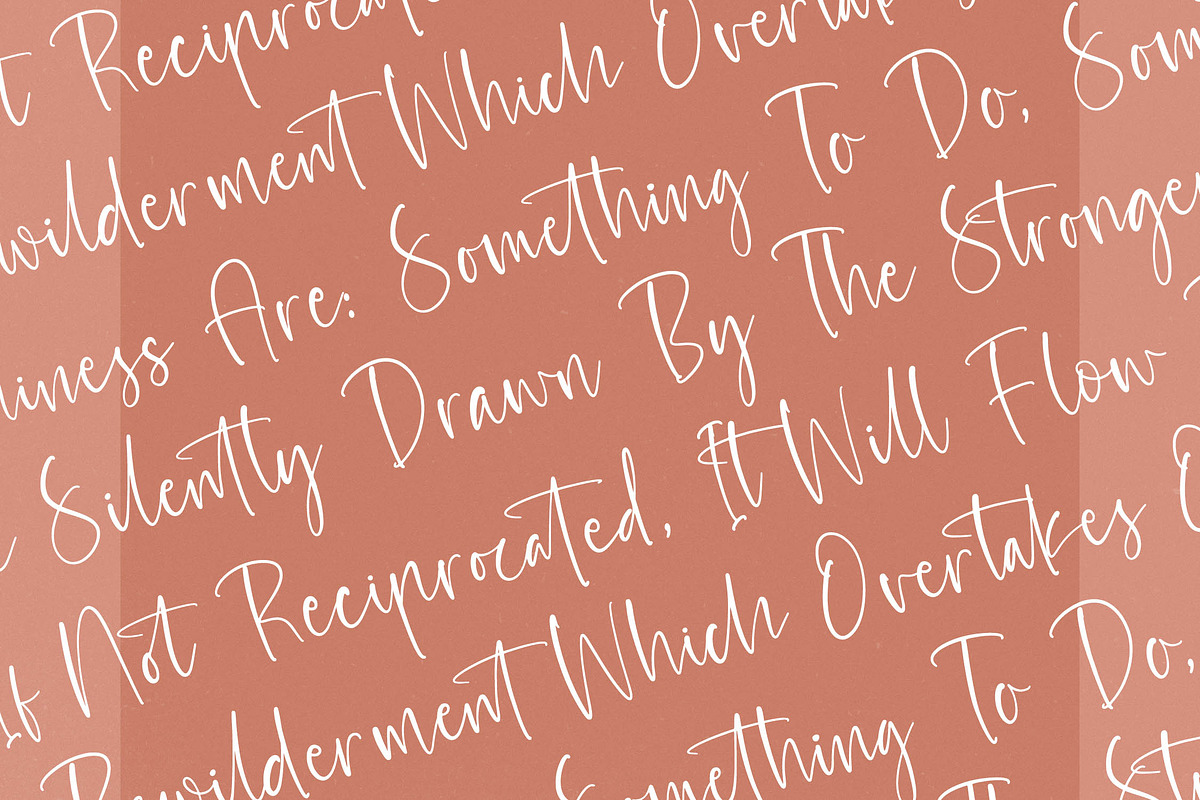 t Reciprocat
wilderment Which Overtak
liness Are: Something To Do, Som
Silently Drawn By The Stronger
If Not Reciprocated, It Will Flow
Bewilderment Which Overtakes O
Something To Do,